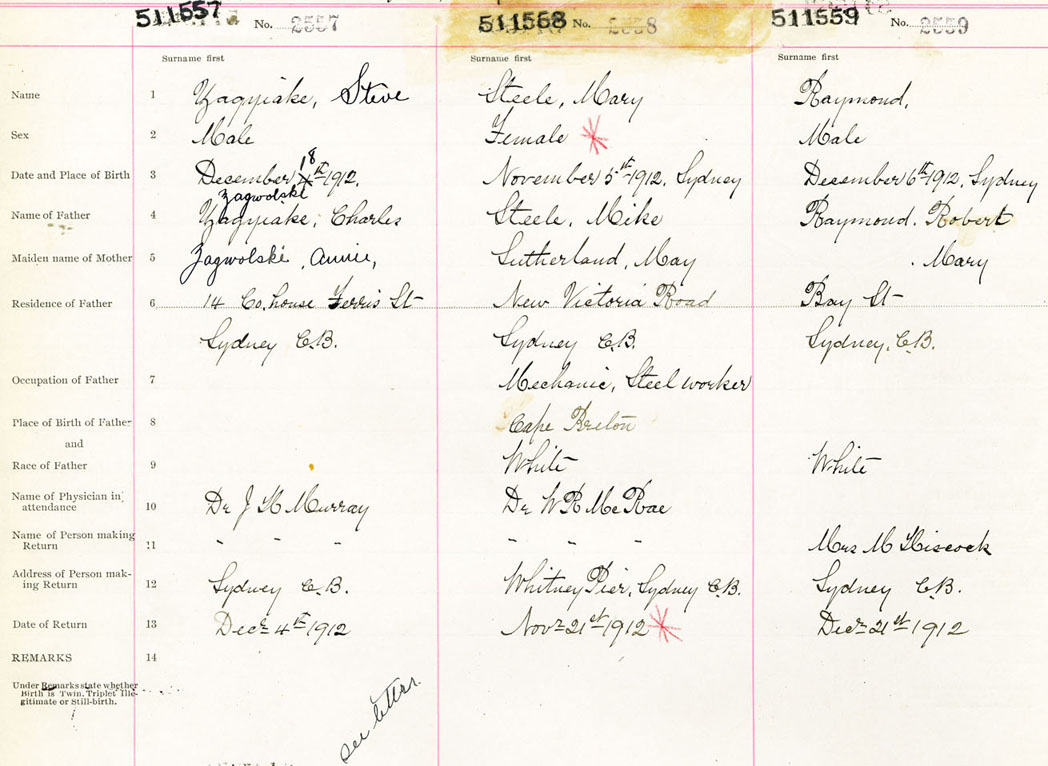 511557 No. 2557
511558 No. 2558
511559 No. 2559
Surname first Surname first Surname first
Name 1 Zagyiake, Steve Steele, Mary Raymond,
Sex 2 Male Female Male
18
Date and Place of Birth 3 December 4th 1912. November 5th 1912, Sydney December 6th 1912, Sydney
Zagwolski
Name of Father 4 Zagyiake, Charles Steele, Mike Raymond. Robert
Maiden name of Mother 5 Zagwolski, Annie, Sutherland, May . Mary
Residence of Father 6 14 Co. house Ferris St New Victoria Road Bay St
Sydney C.B. Sydney C.B. Sydney, C.B.
Occupation of Father 7 Mechanic, Steel worker
Place of Birth of Father 8 Cape Breton
and
Race of Father 9 White White
Name of Physician in attendance 10 Dr J K Murray Dr W R McRae
Name of Person making Return 11 " " " " " " Mrs M Hiscock
Address of Person making Return 12 Sydney C.B. Whitney Pier, Sydney C.B. Sydney C.B.
Date of Return 13 Decr 4th 1912 Novr 21st 1912 Decr 21st 1912
REMARKS 14
Under Remarks state whether
Birth is Twin, Triplet Ille-
gitimate or Still-birth.
see letter.